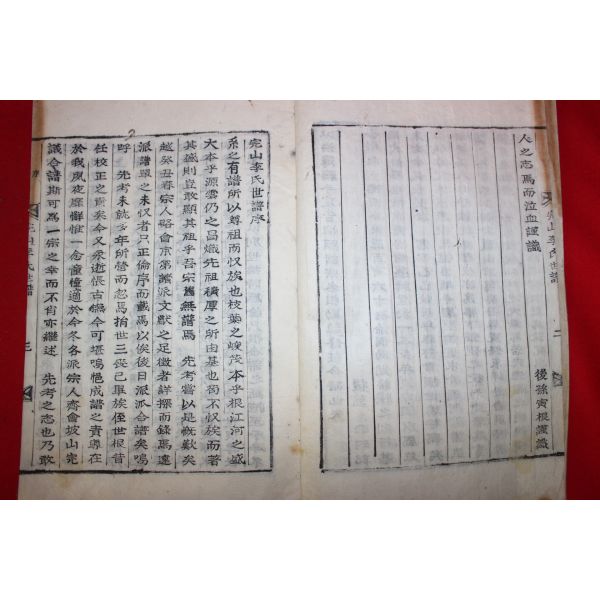 人之志焉而泣血謹識
後孫寅根謹識
完山李氏世譜
二
完山李氏世譜序
系之有譜所以尊祖而收族也枝葉之峻茂本乎根江河之盛
大本乎源雲仍之昌熾先祖積厚之所由基也苟不收族而著
其盛則豈敢顯其祖乎吾宗舊無譜焉 先考嘗以是慨歎矣
越癸丑春宗人略會京第諸派文獻之足徵者詳採而錄焉遠
派譜單之未收者只正倫序而載焉以俟後日派派合譜矣嗚
呼 先考未就多年所營而忽焉捐世三喪已畢族侄世根昔
任校正之責矣今又奄逝悵古憮今可堪嗚悒成譜之責專在
於我夙夜靡懈惟一念憧憧適於今冬各派宗人齊會坡山完
議合譜斯可爲一宗之幸而不肖亦繼述 先考之志也乃敢
完山李氏世譜
三